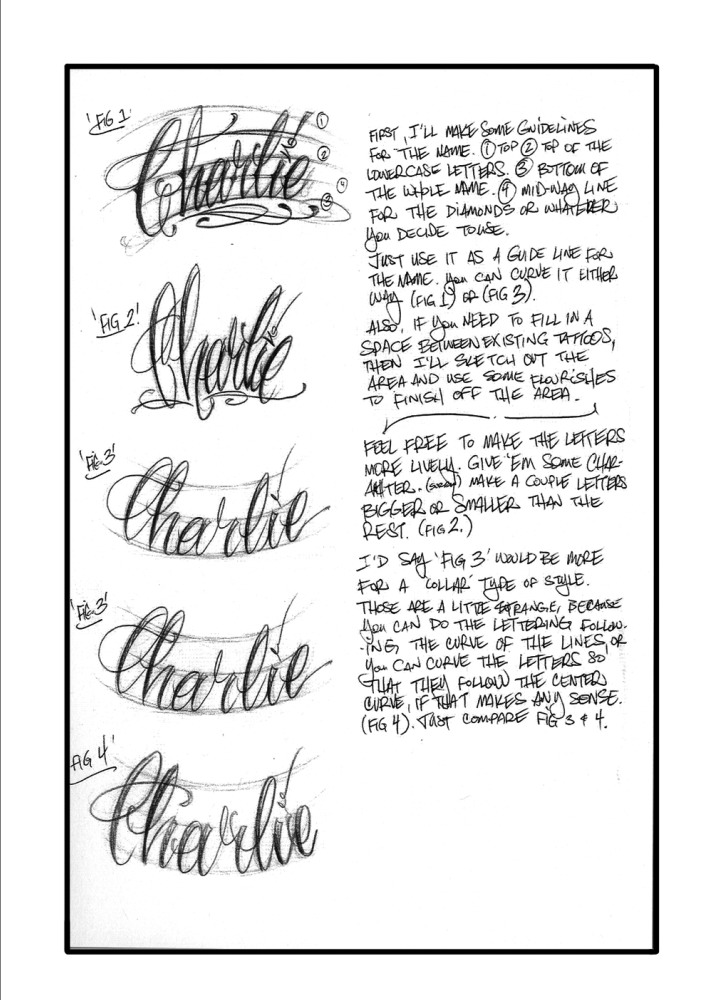 'FIG 1'
Charlie
1
2
4
3
'FIG 2'
Charlie
'FIG 3'
Charlie
'FIG 3'
Charlie
FIG 4'
Charlie
FIRST, I'LL MAKE SOME GUIDELINES
FOR THE NAME. 1 TOP 2 TOP OF THE
LOWERCASE LETTERS. 3 BOTTOM OF
THE WHOLE NAME. 4 MID-WAY LINE
FOR THE DIAMONDS OR WHATEVER
YOU DECIDE TO USE.
JUST USE IT AS A GUIDE LINE FOR
THE NAME. YOU CAN CURVE IT EITHER
WAY (FIG 1) OR (FIG 3).
ALSO, IF YOU NEED TO FILL IN A
SPACE BETWEEN EXISTING TATTOOS,
THEN I'LL SKETCH OUT THE
AREA AND USE SOME FLOURISHES
TO FINISH OFF THE AREA.
FEEL FREE TO MAKE THE LETTERS
MORE LIVELY. GIVE 'EM SOME CHAR-
MAKE A COUPLE LETTERS
BIGGER OR SMALLER THAN THE
REST. (FIG 2.)
I'D SAY 'FIG 3' WOULD BE MORE
FOR A 'COLLAR' TYPE OF STYLE.
THOSE ARE A LITTLE STRANGE, BECAUSE
YOU CAN DO THE LETTERING FOLLOW-
-ING THE CURVE OF THE LINES, OR
YOU CAN CURVE THE LETTERS SO
THAT THEY FOLLOW THE CENTER
CURVE, IF THAT MAKES ANY SENSE.
(FIG 4). JUST COMPARE FIG 3 & 4.